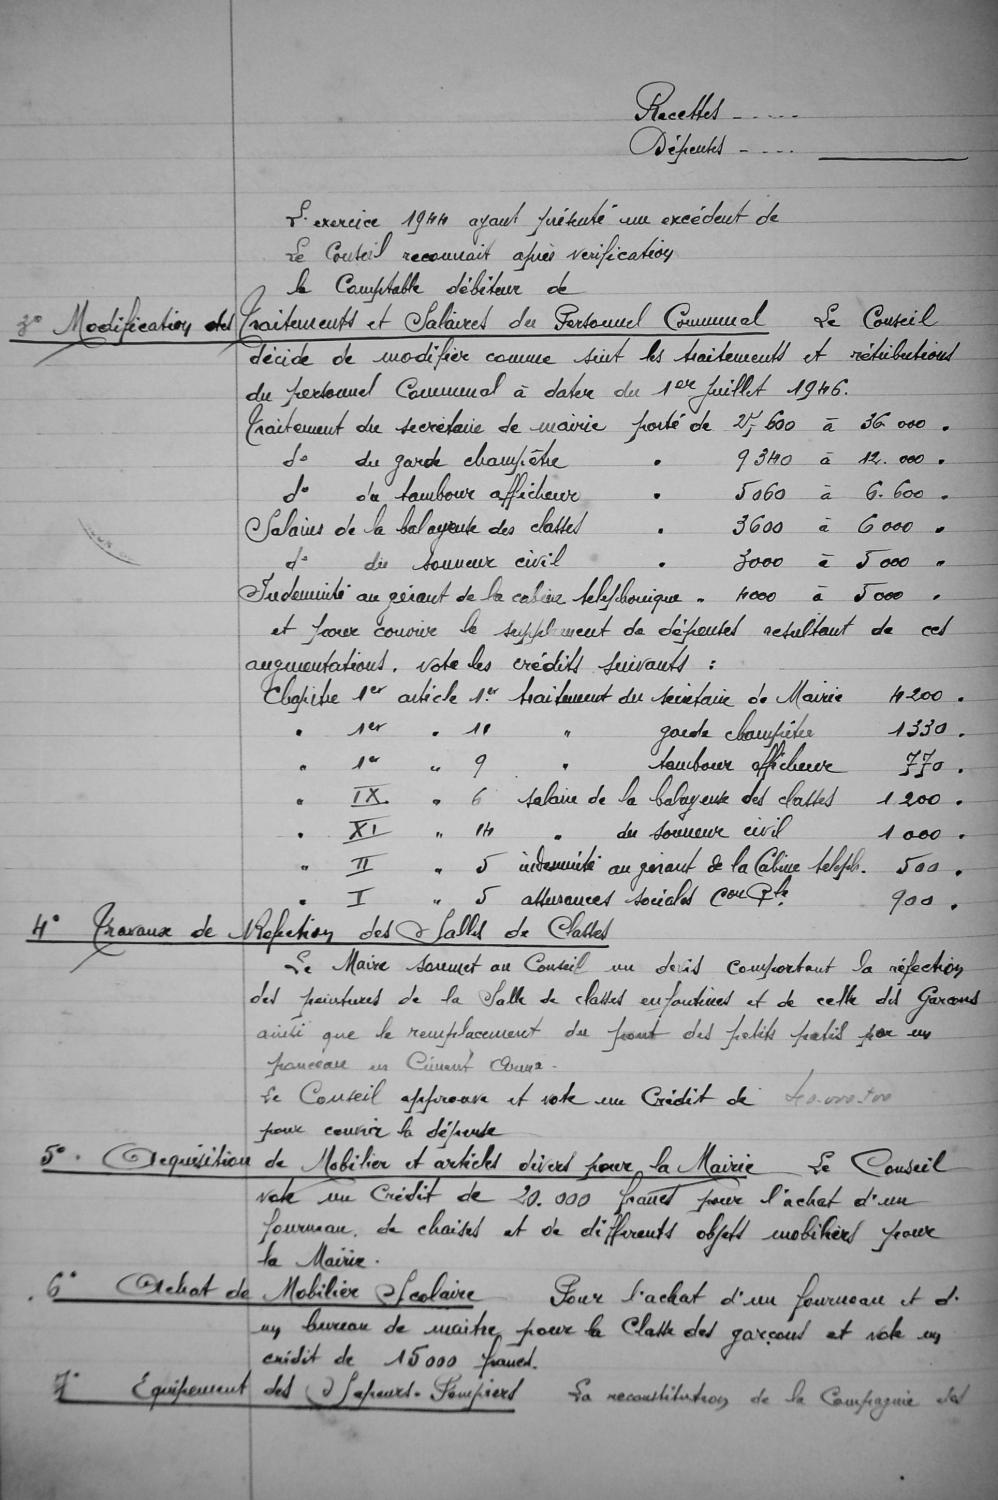 Recettes - . . . .
Dépenses - . . . .
L'exercice 1944 ayant présenté un excédent de
Le Conseil reconnait après verification
le Comptable débiteur de
3° Modification des Traitements et Salaires du Personnel Communal Le Conseil
décide de modifier comme suit les traitements et rétributions
du personnel Communal à dater du 1er juillet 1946.
Traitement du secrétaire de mairie porté de 27,600 à 36 000 .
d° du garde champêtre " 9340 à 12.000 .
d° du tambour afficheur " 5060 à 6.600 .
Salaire de la balayeuse des classes " 3600 à 6000 .
d° du sonneur civil " 3000 à 5000 "
Indemnité au gérant de la cabine telephonique " 4000 à 5000 "
et pour couvrir le supplement de dépenses resultant de ces
augmentations. vote les crédits suivants :
Chapitre 1er article 1er traitement du secrétaire de Mairie 4200 .
" 1er " 11 " garde champêtre 1330 .
" 1er " 9 " tambour afficheur 770 .
" IX " 6 salaire de la balayeuse des classes 1200 .
" XI " 14 " du sonneur civil 1000 .
" II " 5 indemnité au gérant de la Cabine teleph. 500 .
" I " 5 assurances sociales 900 .
4° Travaux de Réfection des Salles de Classes
Le Maire soumet au Conseil un devis comportant la réfection
des peintures de la Salle de classes enfantines et de celle des Garçons
ainsi que le remplacement du pont des petits patis par un
ponceau en Ciment Armé.
Le Conseil approuve et vote un Crédit de
pour couvrir la dépense
5° . Acquisition de Mobilier et articles divers pour la Mairie Le Conseil
vote un Crédit de 20.000 francs pour l'achat d'un
fourneau, de chaises et de différents objets mobiliers pour
la Mairie.
6° Achat de Mobilier Scolaire Pour l'achat d'un fourneau et d'
un bureau de maitre pour la Classe des garçons et vote un
crédit de 15000 francs.
7° Equipement des Sapeurs-Pompiers La reconstitution de la Compagnie des